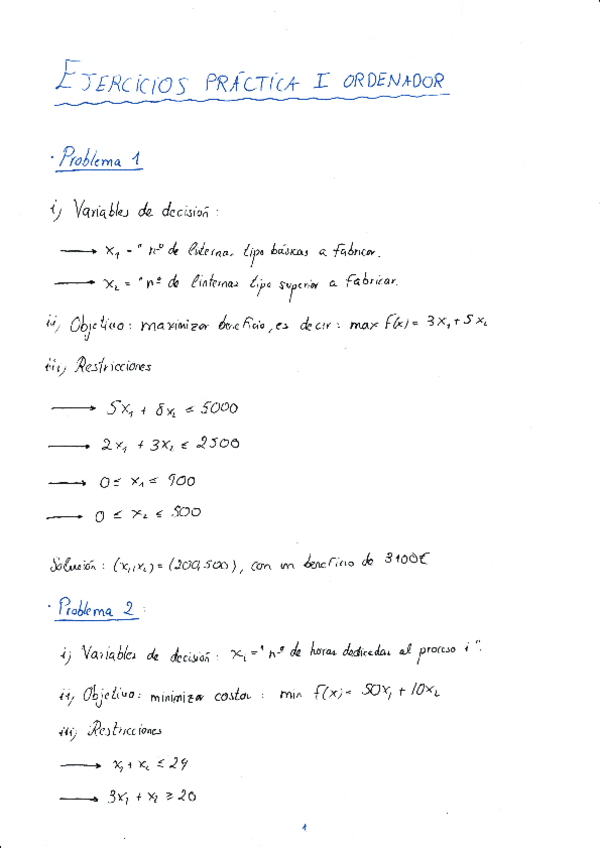 EJERCICIOS PRÁCTICA I ORDENADOR
· Problema 1
i) Variables de decisión :
→ x₁ = "nº de linternas tipo básicas a fabricar.
→ x₂ = "nº de linternas tipo superior a fabricar.
ii) Objetivo : maximizar beneficio, es decir : max f(x) = 3x₁ + 5x₂
iii) Restricciones
→ 5x₁ + 8x₂ ≤ 5000
→ 2x₁ + 3x₂ ≤ 2500
→ 0 ≤ x₁ ≤ 900
→ 0 ≤ x₂ ≤ 500
Solución : (x₁,x₂) = (200,500), con un beneficio de 3100€
· Problema 2 :
i) Variables de decisión : xᵢ = "nº de horas dedicadas al proceso i".
ii) Objetivo : minimizar costar : min f(x) = 50x₁ + 10x₂
iii) Restricciones
→ x₁ + x₂ ≤ 24
→ 3x₁ + x₂ ≥ 20
1